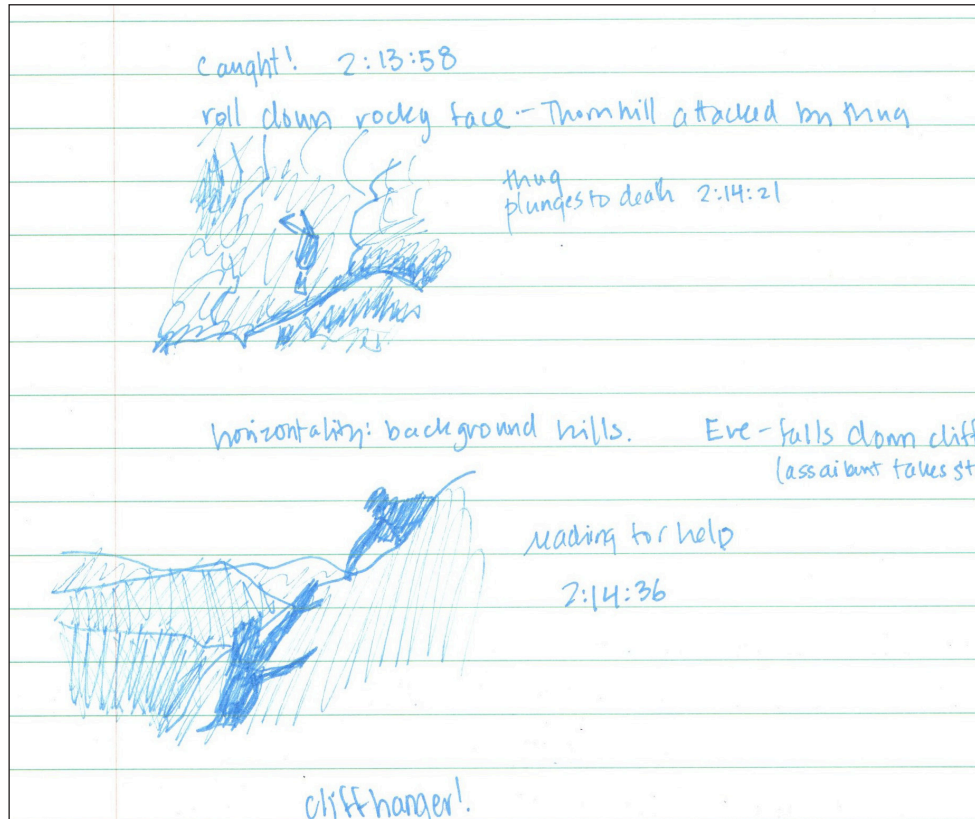 caught! 2:13:58
roll down rocky face - Thornhill attacked by thug
thug
plunges to death 2:14:21
horizontality: background hills. Eve - falls down cliff
(assailant takes st
reaching for help
2:14:36
cliffhanger!